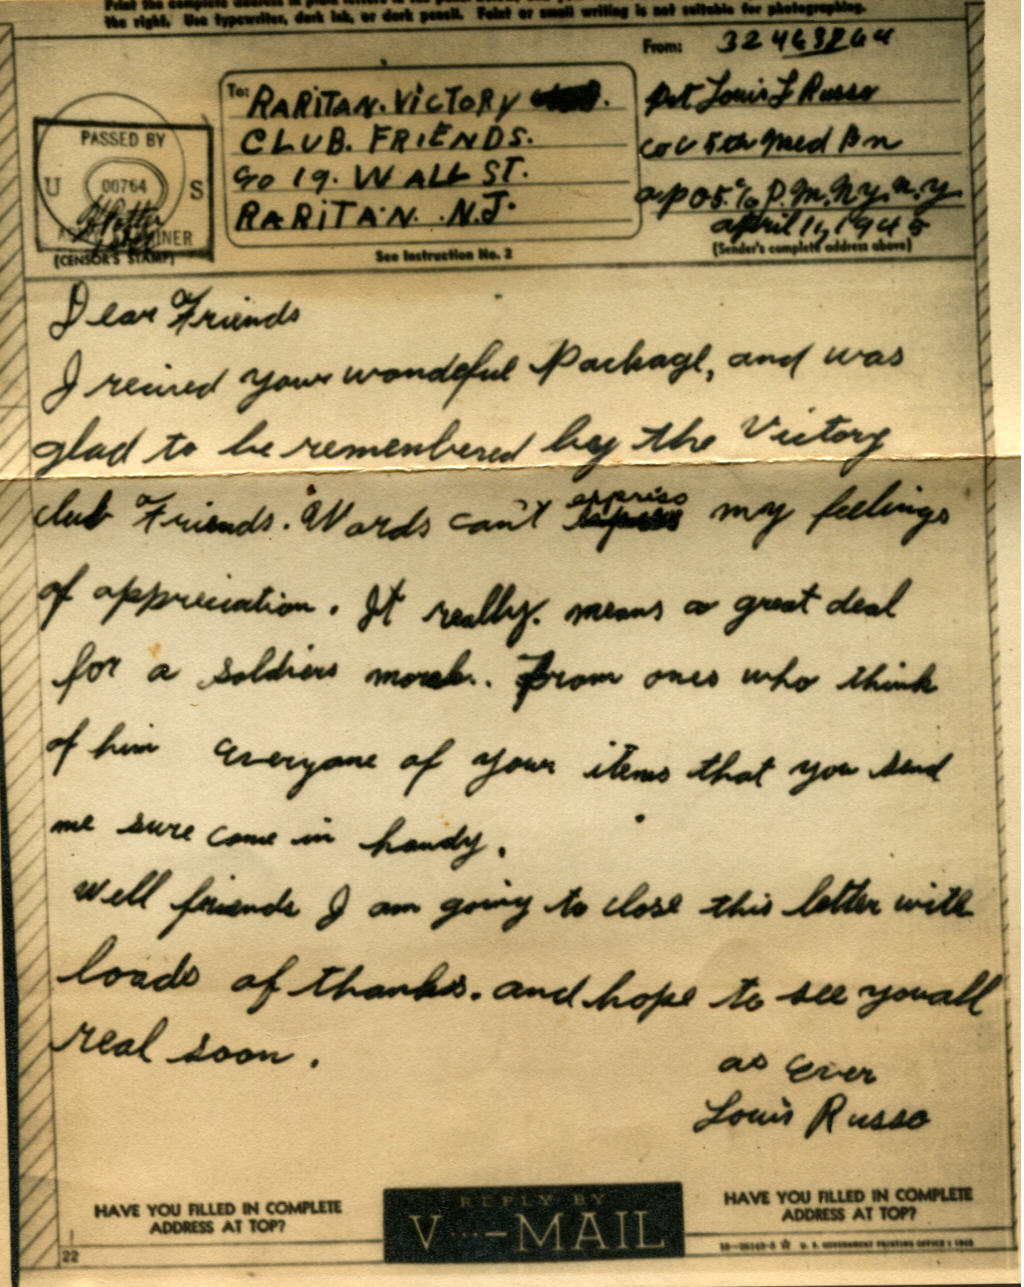 Print the complete address in plain letters in the panel below, and your
the right. Use typewriter, dark ink, or dark pencil. Faint or small writing is not suitable for photographing.
From: 32463864
To: RARITAN. VICTORY
CLUB. FRIENDS.
c/o 19. WALL ST.
RARITAN. N.J.
Pvt Louis F Russo
Co C 5th Med Bn
apo 5 c/o P.M. N.y. N.y
april 11, 1945
(Sender's complete address above)
PASSED BY
U 00764 S
(CENSOR'S STAMP)
See Instruction No. 2
Dear Friends
I recived your wondeful Package, and was
glad to be remembered by the Victory
club Friends. Words can't express my feelings
of appreciation. It really. means a great deal
for a soldiers morale. From ones who think
of him everyone of your items that you send
me sure come in handy.
Well friends I am going to close this letter with
loads of thanks. and hope to see you all
real soon.
as ever
Louis Russo
HAVE YOU FILLED IN COMPLETE
ADDRESS AT TOP?
REPLY BY
V···—MAIL
HAVE YOU FILLED IN COMPLETE
ADDRESS AT TOP?
22
U. S. GOVERNMENT PRINTING OFFICE : 1943